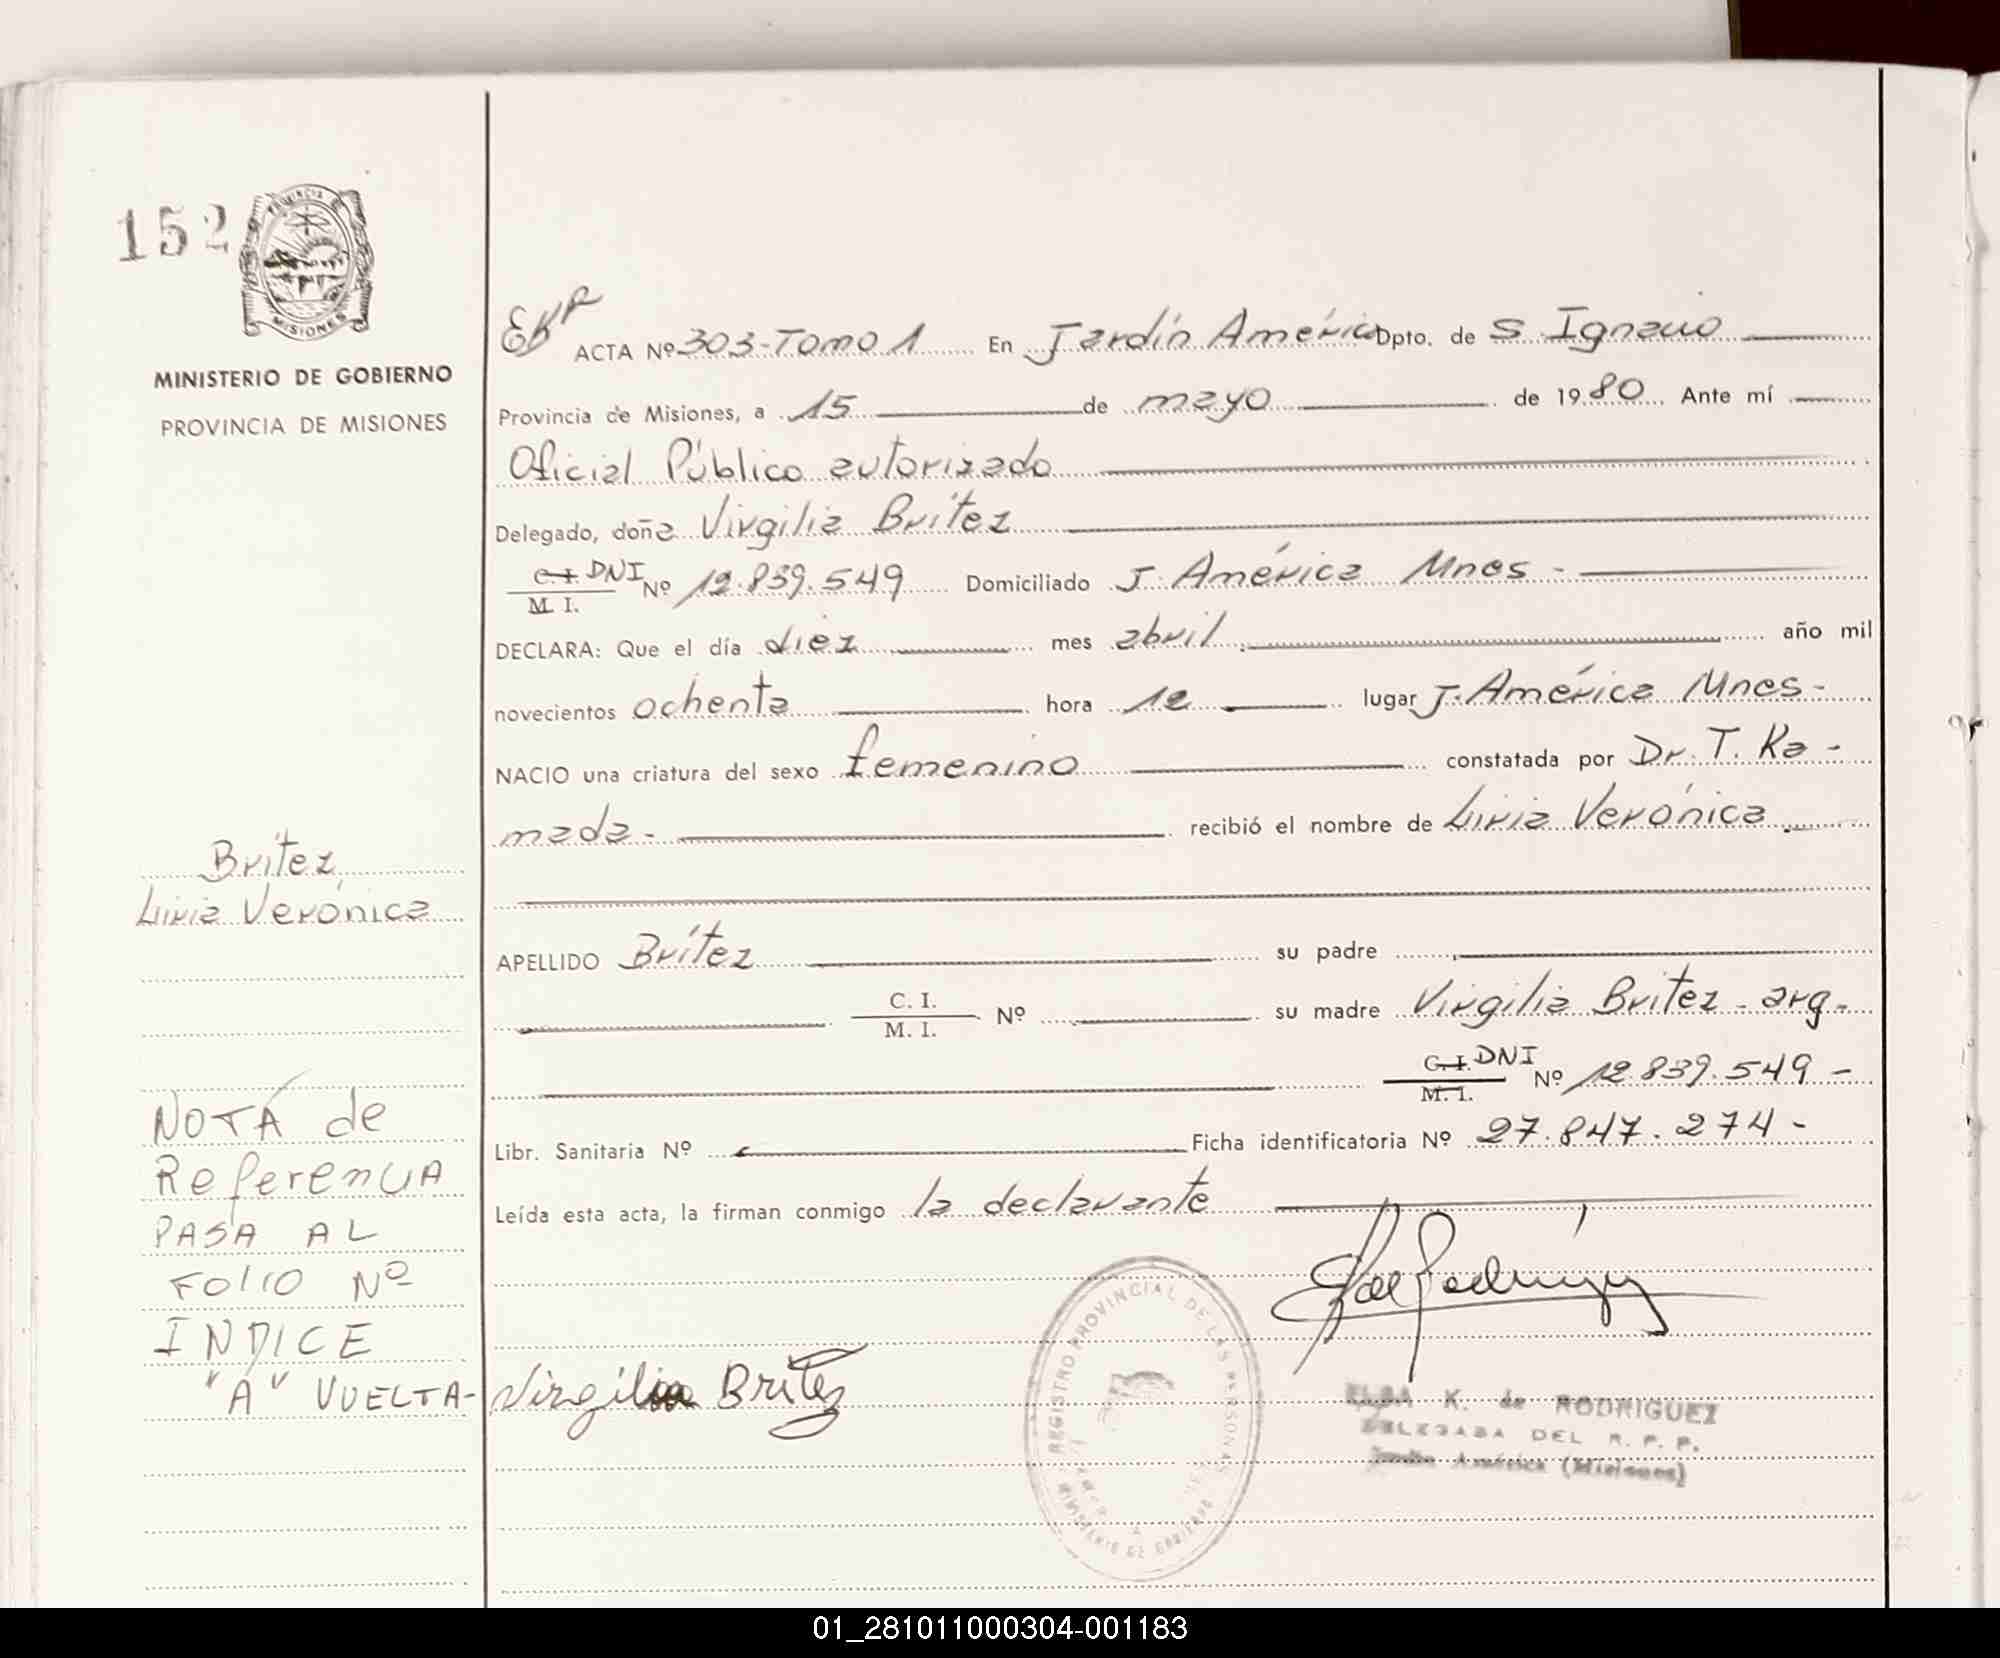 152
PROVINCIA DE
MISIONES
MINISTERIO DE GOBIERNO
PROVINCIA DE MISIONES
ACTA Nº 303-Tomo 1 En Jardín América Dpto. de S. Ignacio
Provincia de Misiones, a 15 de mayo de 1980 Ante mí
Oficial Público autorizado
Delegado, doña Virgilia Brítez
C. I. DNI Nº 12.839.549 Domiciliado J. América Mnes -
M. I.
DECLARA: Que el día diez mes abril año mil
novecientos ochenta hora 12 lugar J. América Mnes-
NACIO una criatura del sexo femenino constatada por Dr. T. Ka-
mada- recibió el nombre de Liria Verónica
Brítez,
Liria Verónica
APELLIDO Brítez su padre
C. I. Nº su madre Virgilia Brítez - arg-
M. I.
C. I. DNI Nº 12.839.549 -
M. I.
Libr. Sanitaria Nº Ficha identificatoria Nº 27.847.274-
Leída esta acta, la firman conmigo la declarante
NOTA de
Referencia
PASA AL
FOLIO Nº
INDICE
"A" VUELTA-
Virgilia Britez
REGISTRO PROVINCIAL DE LAS PERSONAS
MINISTERIO DE GOBIERNO
ELBA K. de RODRIGUEZ
DELEGADA DEL R. P. P.
Jardín América (Misiones)
01_281011000304-001183